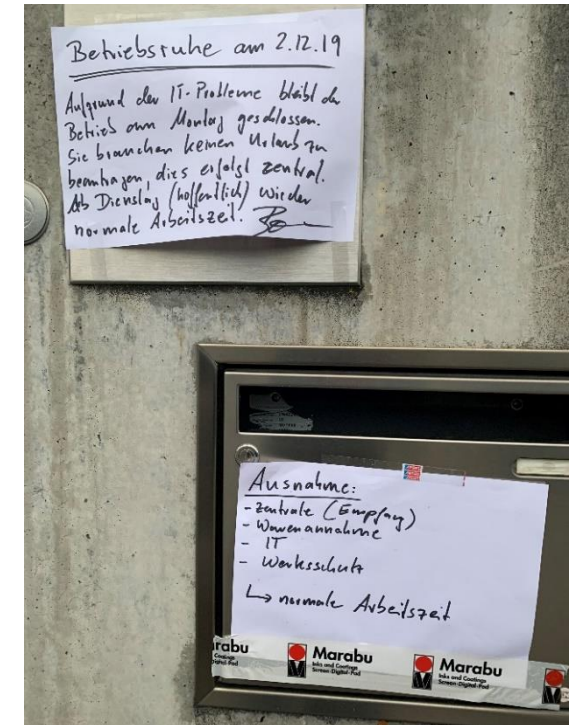 Betriebsruhe am 2.12.19
Aufgrund der IT-Probleme bleibt der
Betrieb am Montag geschlossen.
Sie brauchen keinen Urlaub zu
beantragen, dies erfolgt zentral.
Ab Dienstag (hoffentlich) wieder
normale Arbeitszeit.
Ausnahme:
- Zentrale (Empfang)
- Warenannahme
- IT
- Werksschutz
↳ normale Arbeitszeit
rabu
Coatings
Digital·Pad
Marabu
Inks and Coatings
Screen·Digital·Pad
Marabu
Inks and Coatings
Screen·Digital·Pad